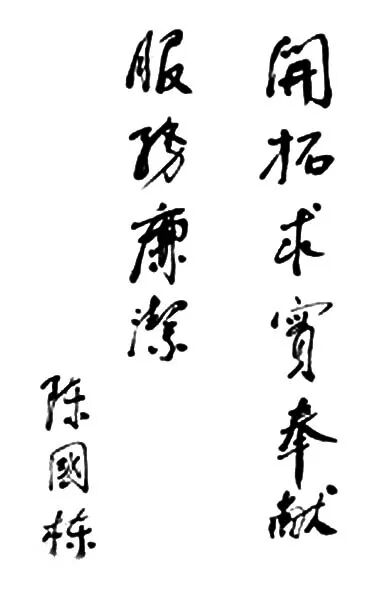 開拓求實奉献
服務廉潔
陈國栋